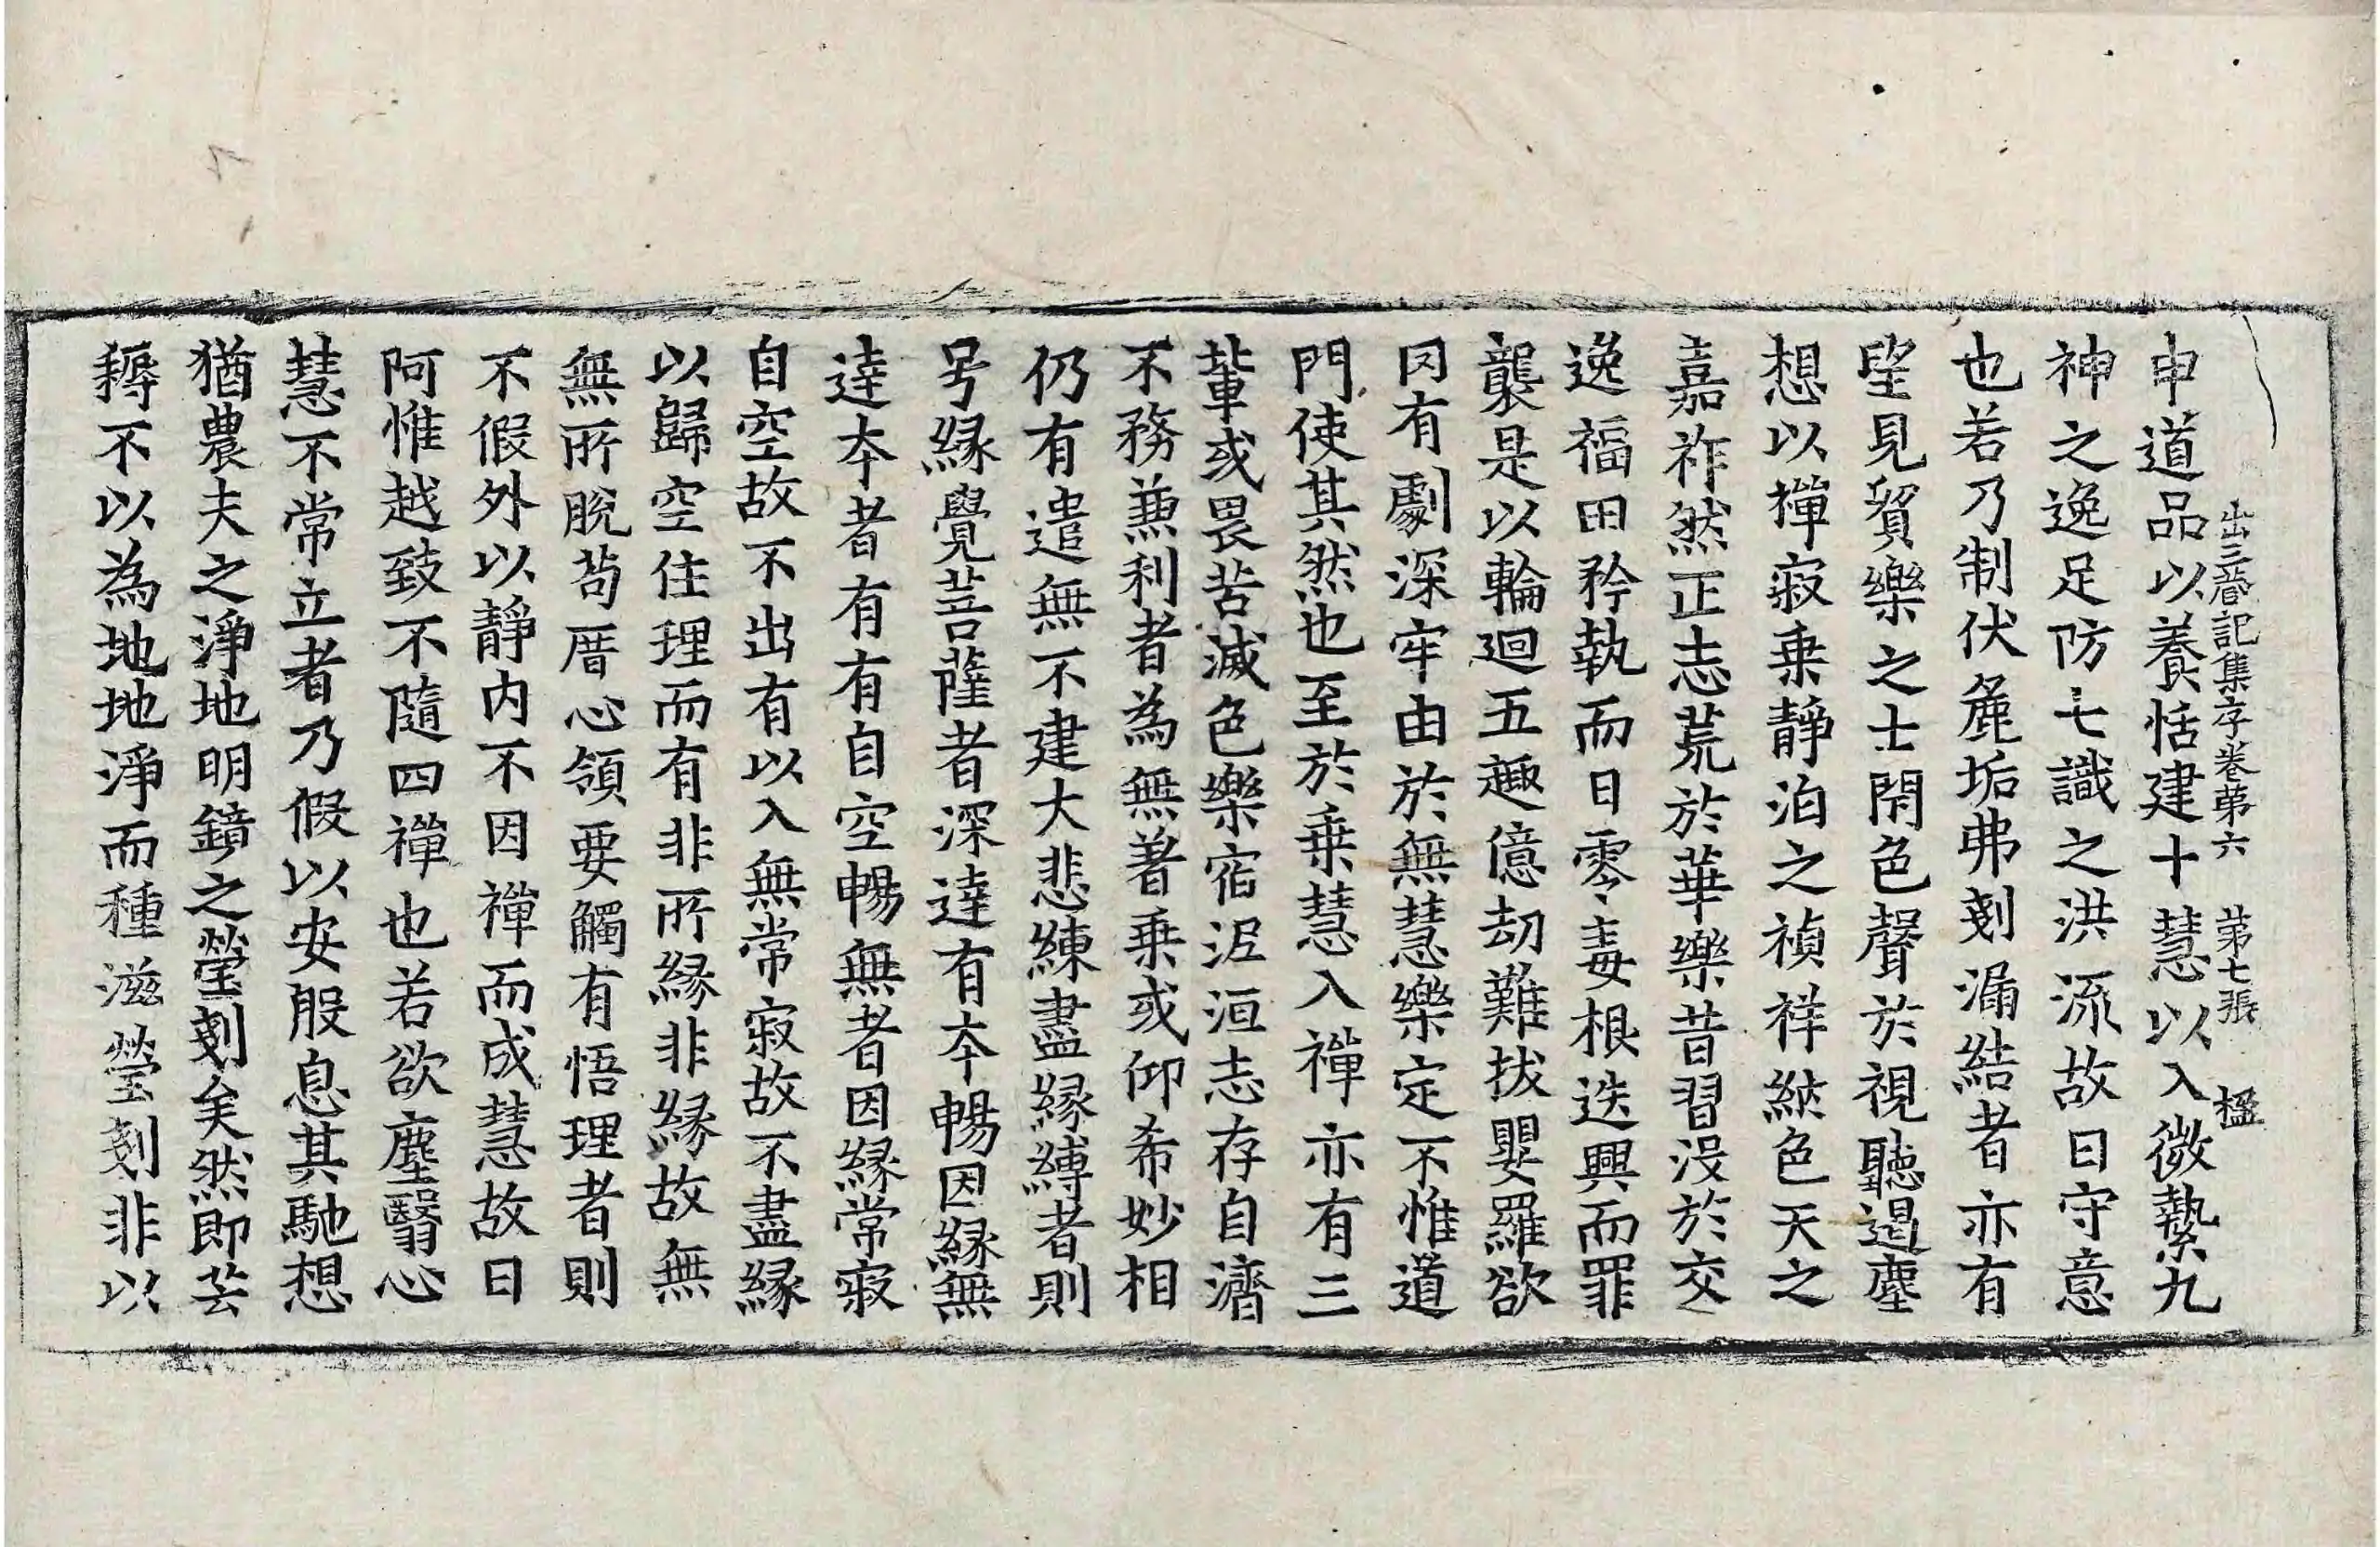 出三藏記集序卷苐六 苐七張 楹
申道品以養恬建十慧以入微縶九
神之逸足防七識之洪流故曰守意
也若乃制伏麁垢弗刻漏結者亦有
望見貿樂之士閇色聲於視聽遏塵
想以禪寂乗靜泊之禎祥納色天之
嘉祚然正志荒於華樂昔習没於交
逸福田矜執而日零毒根迭興而罪
襲是以輪迴五趣億劫難拔嬰羅欲
冈有劇深牢由於無慧樂定不惟道
門使其然也至於乗慧入禪亦有三
軰或畏苦滅色樂宿泥洹志存自濟
不務兼利者為無著乗或仰希妙相
仍有遣無不建大悲練盡縁縛者則
号縁覺菩薩者深達有夲暢因縁無
達夲者有有自空暢無者因縁常寂
自空故不出有以入無常寂故不盡縁
以歸空住理而有非所縁非縁故無
無所脫苟厝心領要觸有悟理者則
不假外以靜内不因禪而成慧故曰
阿惟越致不隨四禪也若欲塵翳心
慧不常立者乃假以安般息其馳想
猶農夫之淨地明鏡之瑩刻矣然即芸
耨不以為地地淨而種滋瑩刻非以